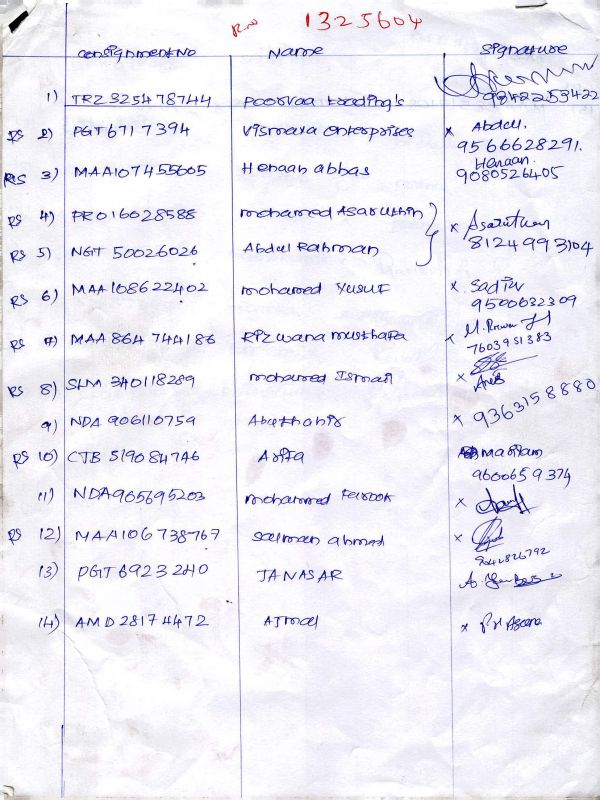 R.no 1325604
Consignment No Name Signature
1) TRZ 325478744 Poorvaa trading's 9342253422
RS 2) PGT 6717394 Vismaya enterprises x Abdul. 9566628291.
RS 3) MAA107455605 Henaan abbas Henaan. 9080526405
RS 4) PRO16028588 mohamed Asaruthin
RS 5) NGT 50026026 Abdul Rahman x Asaruthen 8124993104
RS 6) MAA108622402 mohamed Yusuf x Sadiv 9500632309
RS 7) MAA 864 744186 Rizwana musthafa x 7603951383
RS 8) SLM 340118289 mohamed Ismail x Anis
9) NDA 906110759 Abuthahir x 9363158880
RS 10) CJB 519084746 Arifa mariyam 9600659374
11) NDA905695203 mohammed farook x
RS 12) MAA106738767 Salman ahmad x 9042826792
13) PGT6923240 JANASAR
14) AMD 28174472 Ajmal x